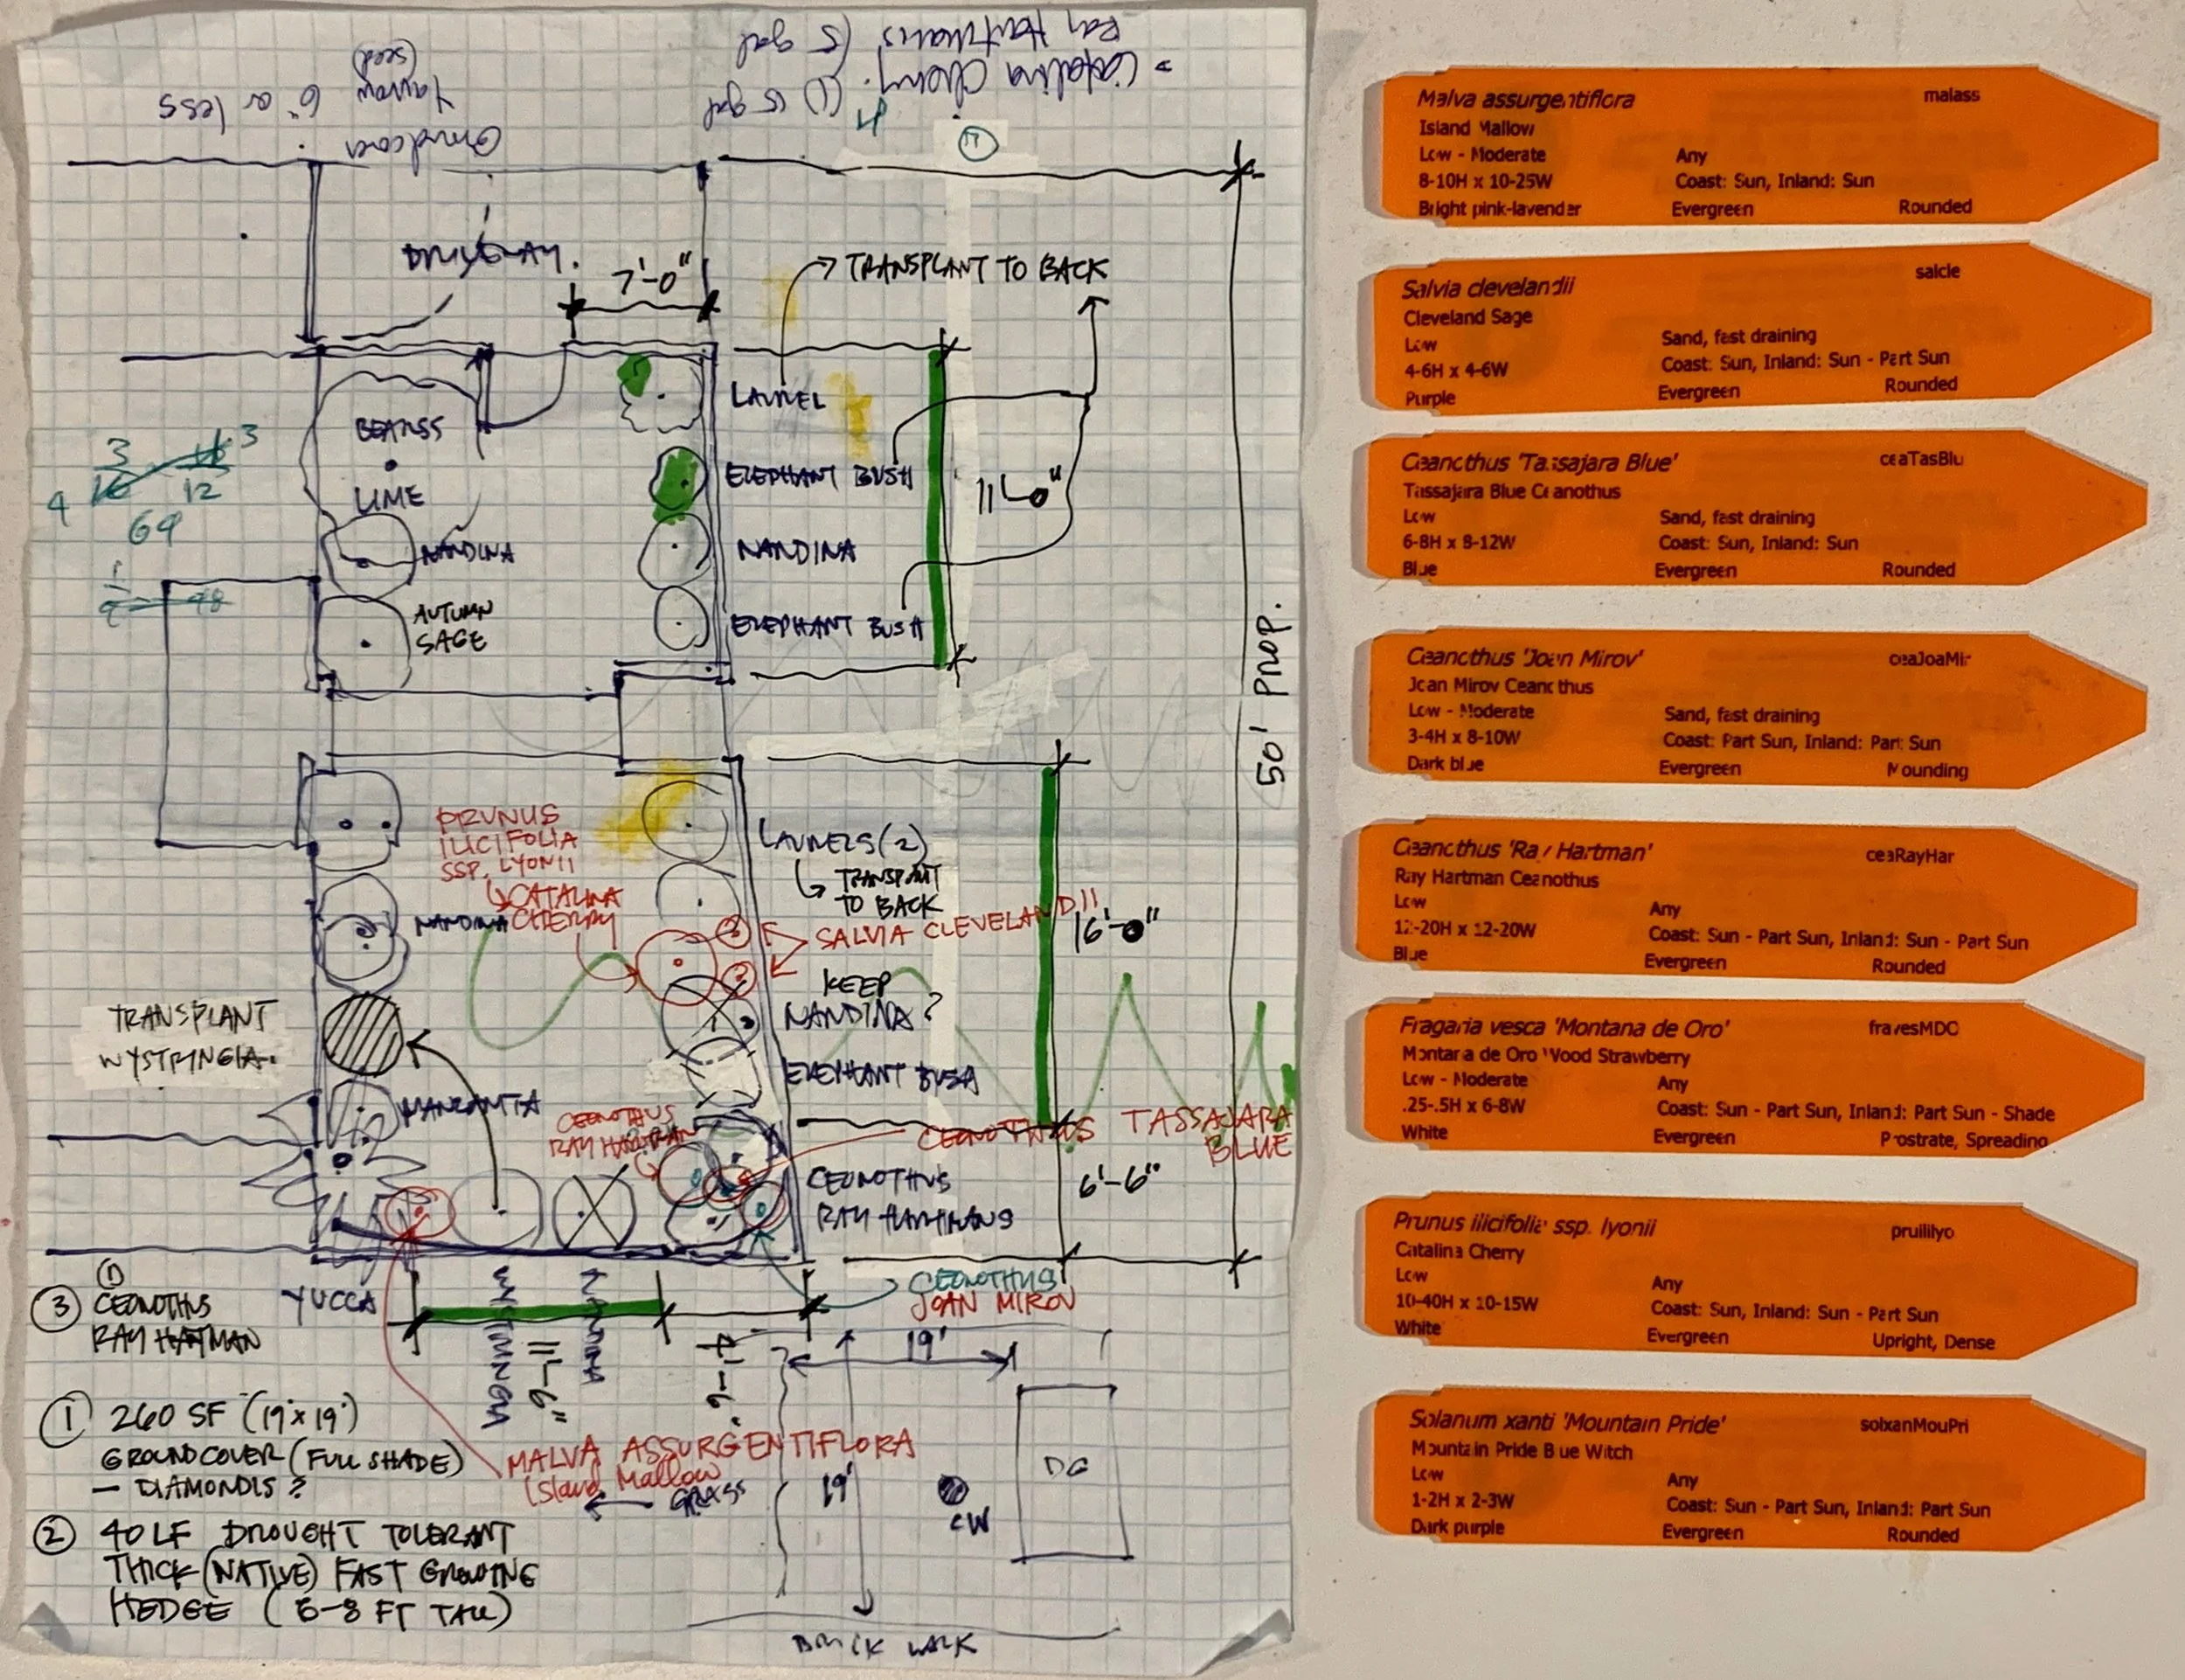 - Catalina Cherry. (1) 15 gal
Ray Hartmans (5 gal
4
Groundcover
Yarrow 6" or less
(seed)
11
DRIVEWAY.
7'-0"
TRANSPLANT TO BACK
LAUREL
BEARSS
LIME
ELEPHANT BUSH
11'-0"
NANDINA
NANDINA
AUTUMN
SAGE
ELEPHANT BUSH
3
16
3
12
4
64
48
50' PROP.
PRUNUS
ILICIFOLIA
SSP. LYONII
CATALINA
CHERRY
LAURELS (2)
TRANSPLANT
TO BACK
NANDINA
SALVIA CLEVELANDII
16'-0"
KEEP
NANDINA?
TRANSPLANT
WYSTRINGIA.
ELEPHANT BUSH
MANZANITA
CEONOTHUS
RAY HARTMAN
CEONOTHUS TASSAJARA
BLUE
CEONOTHUS
RAY HARTMANS
6'-6"
YUCCA
WYSTRINGIA
NANDINA
11'-6"
4'-6"
CEONOTHUS
JOAN MIROV
(1)
3 CEONOTHUS
RAY HATMAN
1 260 SF (19'x19')
GROUNDCOVER (FULL SHADE)
- DIAMONDIS?
MALVA ASSURGENTIFLORA
Island Mallow
GRASS
19'
19'
DG
CW
2 40 LF DROUGHT TOLERANT
THICK (NATIVE) FAST GROWING
HEDGE (6-8 FT TALL)
BRICK WALK
Malva assurgentiflora malass
Island Mallow
Low - Moderate Any
8-10H x 10-25W Coast: Sun, Inland: Sun
Bright pink-lavender Evergreen Rounded
Salvia clevelandii salcle
Cleveland Sage
Low Sand, fast draining
4-6H x 4-6W Coast: Sun, Inland: Sun - Part Sun
Purple Evergreen Rounded
Ceanothus 'Tassajara Blue' ceaTasBlu
Tassajara Blue Ceanothus
Low Sand, fast draining
6-8H x 8-12W Coast: Sun, Inland: Sun
Blue Evergreen Rounded
Ceanothus 'Joan Mirov' ceaJoaMir
Joan Mirov Ceanothus
Low - Moderate Sand, fast draining
3-4H x 8-10W Coast: Part Sun, Inland: Part Sun
Dark blue Evergreen Mounding
Ceanothus 'Ray Hartman' ceaRayHar
Ray Hartman Ceanothus
Low Any
12-20H x 12-20W Coast: Sun - Part Sun, Inland: Sun - Part Sun
Blue Evergreen Rounded
Fragaria vesca 'Montana de Oro' fravesMDO
Montana de Oro Wood Strawberry
Low - Moderate Any
.25-.5H x 6-8W Coast: Sun - Part Sun, Inland: Part Sun - Shade
White Evergreen Prostrate, Spreading
Prunus ilicifolia ssp. lyonii pruililyo
Catalina Cherry
Low Any
10-40H x 10-15W Coast: Sun, Inland: Sun - Part Sun
White Evergreen Upright, Dense
Solanum xanti 'Mountain Pride' solxanMouPri
Mountain Pride Blue Witch
Low Any
1-2H x 2-3W Coast: Sun - Part Sun, Inland: Part Sun
Dark purple Evergreen Rounded